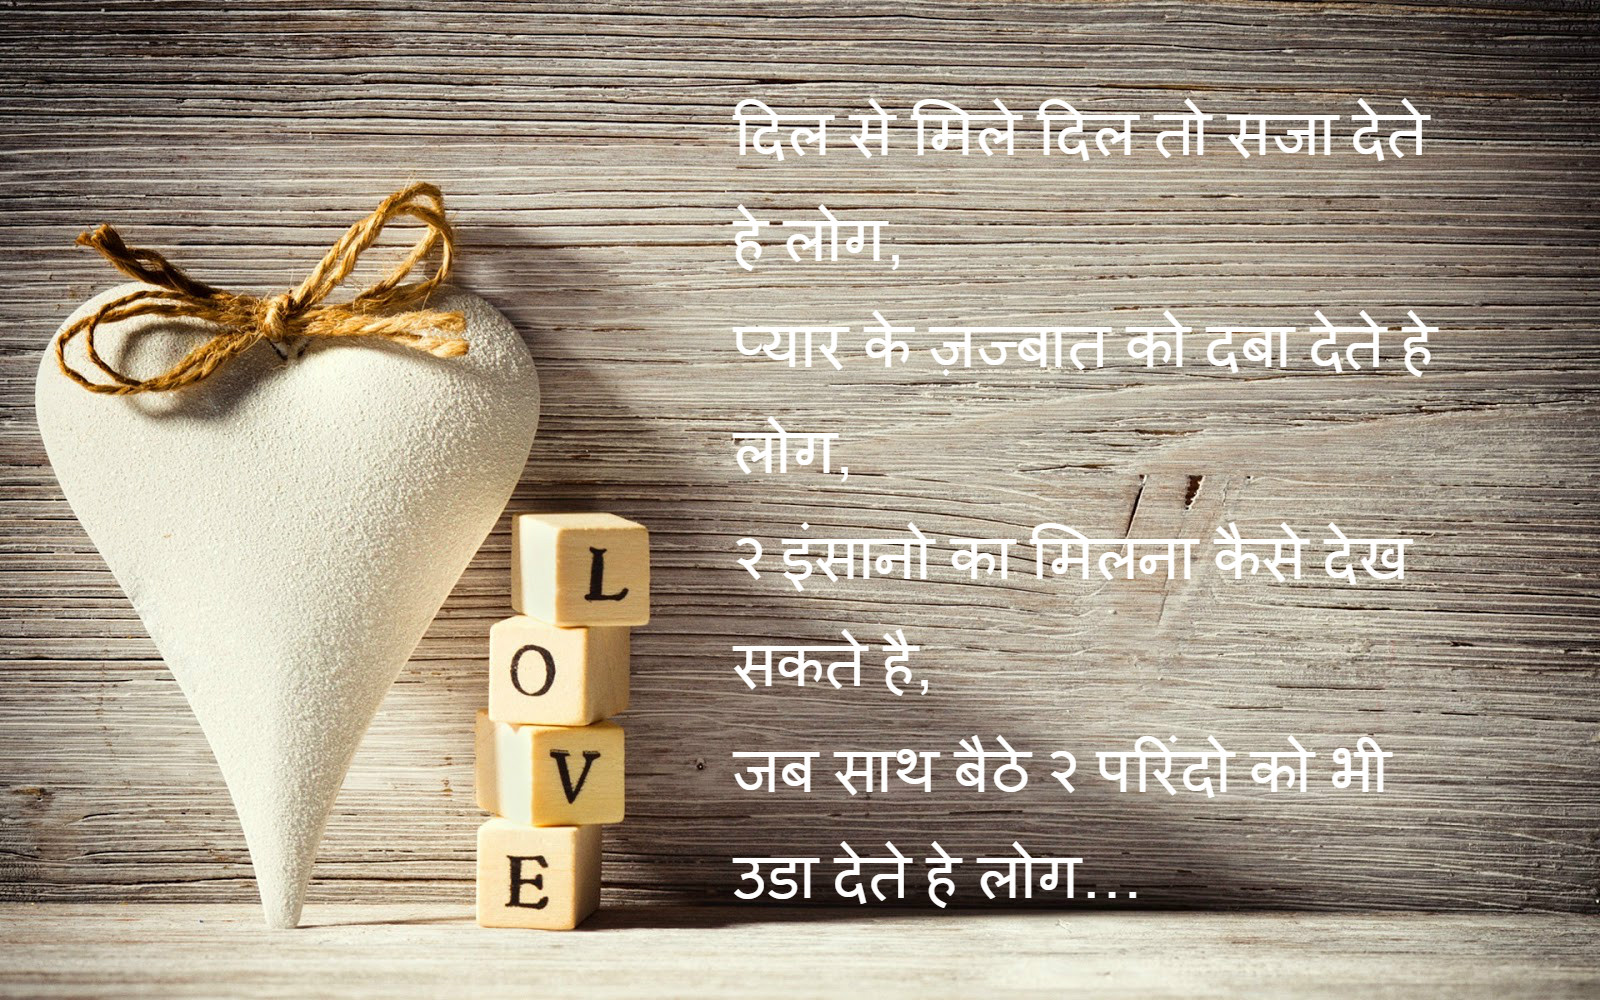 दिल से मिले दिल तो सजा देते
हे लोग,
प्यार के ज़ज्बात को दबा देते हे
लोग,
२ इंसानो का मिलना कैसे देख
सकते है,
जब साथ बैठे २ परिंदो को भी
उडा देते हे लोग...
L
O
V
E